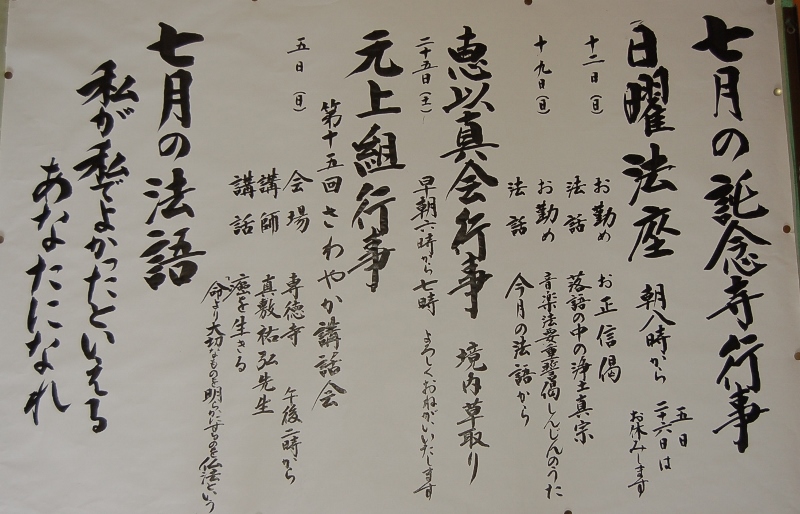 七月の託念寺行事
日曜法座 朝八時から
五日
二十六日は
お休みします
十二日(日) お勤め お正信偈
法話 落語の中の浄土真宗
十九日(日) お勤め 音楽法要重誓偈しんじんのうた
法話 今月の法語から
恵以真会行事 境内草取り
二十五日(土) 早朝六時から七時 よろしくおねがいいたします
元上組行事
第十五回さわやか講話会
五日(日) 会場 専徳寺 午後二時から
講師 真敷祐弘先生
講話 癌を生きる
「命より大切なものを明らかにするものを仏法という
七月の法語
私が私でよかったといえる
あなたになれ